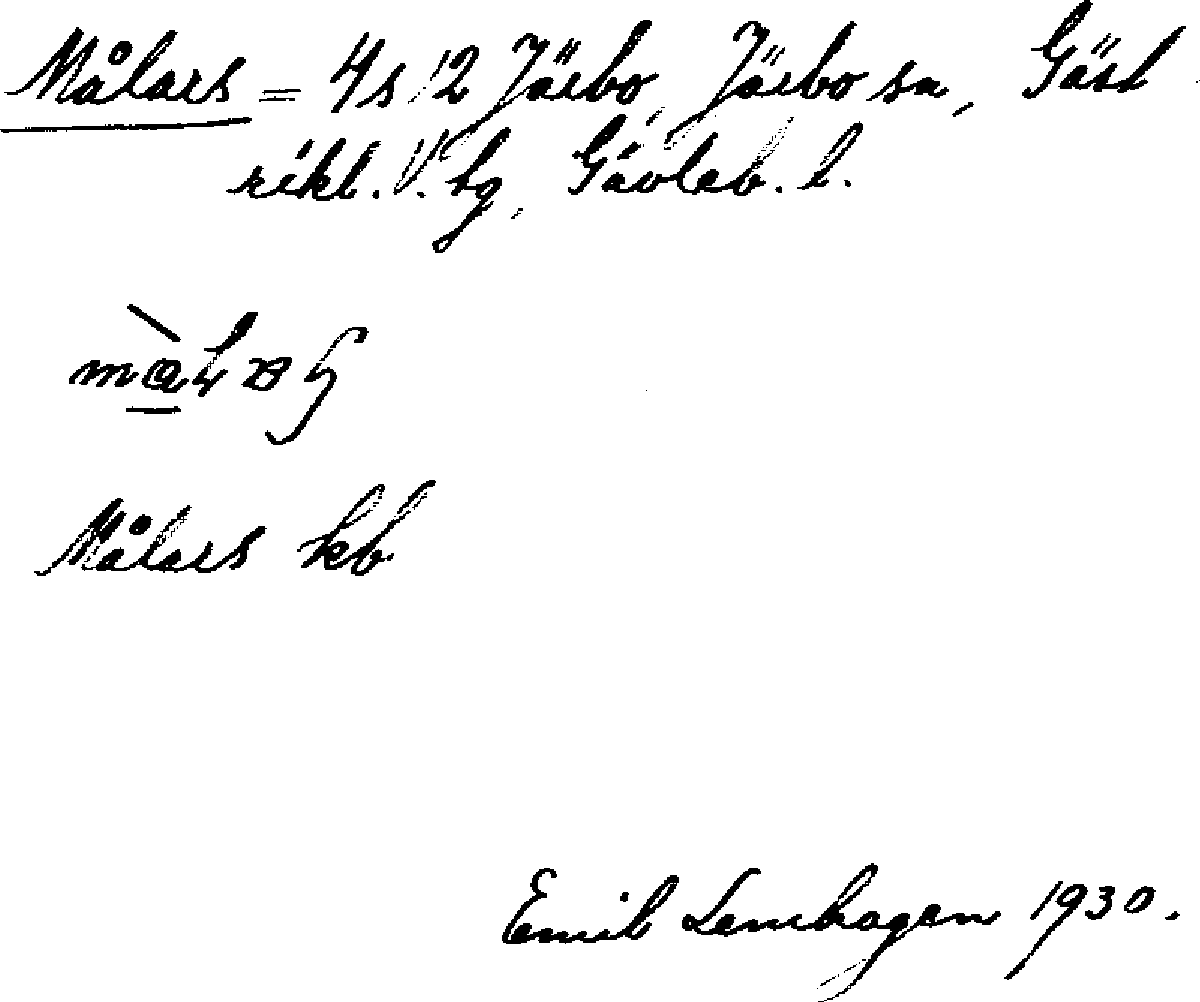 Målars = 4s 12 Järbo, Järbo sn, Gäst
rikl. V. hg, Gävleb. l.
Målars kb
Emil Lenhagen 1930.